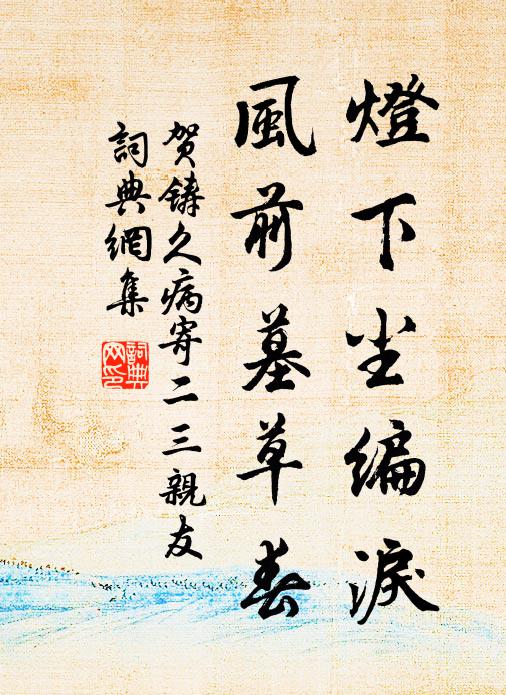 燈下尘編淚
風前墓草春
贺鑄久病寄二三親友
詞典網集
詞典网印